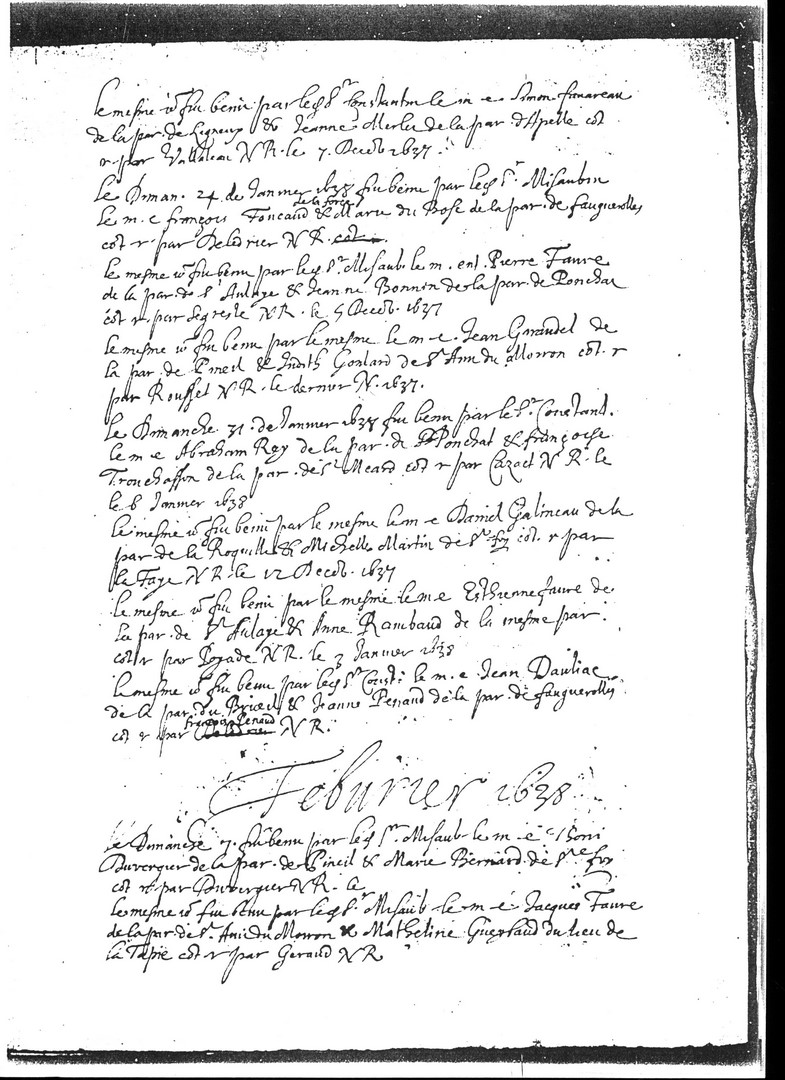 le mesme io^r fu beni par led s^r Constantin le m. e. Simon favareau
de la par. de Ligneux & Jeanne Merlet de la par d'Apelle cot
r. par Valleteau N R. le 7. Deceb 1637.
Le Diman. 24 de Janvier 1638 fu beni par led S^r. Misaubin
de la force
le m. e françois Foucaud & Marie du Bosc de la par. de fauguerolles
cot r. par Deladrier N R. cot
le mesme io^r fu beni par led s^r. Misaub. le m. ent. Pierre Faure
de la par. de s^t Aulaye & Jeanne Bonnin de la par. de Ponchat
cot r. par Segreste N R. le 5 Deceb. 1637
le mesme io^r fu beni par le mesme le m. e. Jean Giraudel de
la par. de Pineil & Judith Goulard de s^t Avit du Moiron cot. r
par Rousset N R. le dernier N. 1637.
Le Dimanche 31. de Janvier 1638 fu beni par le S^r. Constant.
le m. e Abraham Rey de la par. de Ponchat & françoise
Tronchasson de la par. de s^t Meard cot r par Cazact N R. le
le 6 Janvier 1638
le mesme io^r fu beni par le mesme le m e Daniel Galineau de la
par de la Roquille & Michelle Martin de s^te foy cot. r par
la Faye N R. le 12 Deceb. 1637
le mesme io^r fu beni par le mesme le m e Esthienne faure de
la par. de s^t Aulaye & Anne Rambaud de la mesme par.
cot r par Pogade N R. le 3 Janvier 1638
le mesme io^r fu beni par led s^r Const: le m. e. Jean Dauliac
de la par. du Brueil & Jeanne Renaud de la par. de fauguerolles
françois Renaud
cot r par Deladrier N R.
Feburier 1638
le Dimanche 7. fu beni par led S^r. Misaub. le m e
Duvergier de la par. de Pineil & Marie Bernard. de s^te foy
cot r. par Duvergier N R. le
le mesme io^r fu beni par led s^r. Misaub le m e Jacques Faure
de la par de s^t. Avit du Moiron & Matheline Gueyraud du lieu de
la Tapie cot r par Geraud N R